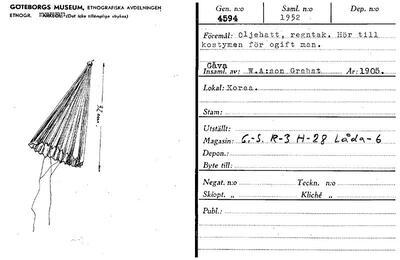 GÖTEBORGS MUSEUM, ETNOGRAFISKA AVDELNINGEN
ETNOGR. (Det icke tillämpliga strykes)
32 cm.
Gen. n:o Saml. n:o Dep. n:o
4594 1952
Föremål: Oljehatt, regntak. Hör till
kostymen för ogift man.
Gåva
Insaml. av: W.A:son Grebst År: 1905.
Lokal: Korea.
Stam:
Utställt:
Magasin: G.-S. R-3 H-28 Låda-6
Depon.:
Byte till:
Negat. n:o Teckn. n:o
Skiopt. „ Kliché „
Publ.: